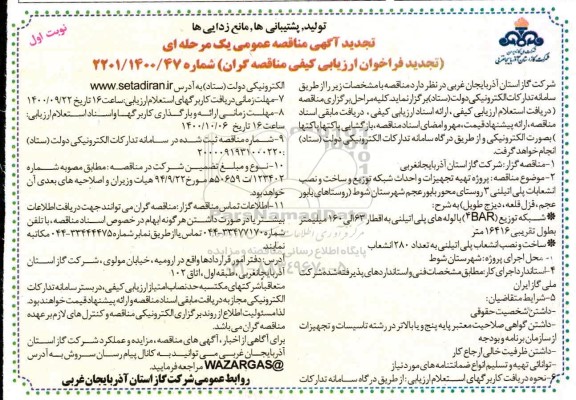 نوبت اول
تولید، پشتیبانی ها، مانع زدایی ها
تجدید آگهی مناقصه عمومی یک مرحله ای
(تجدید فراخوان ارزیابی کیفی مناقصه گران) شماره ۲۲۰۱/۱۴۰۰/۴۷
شرکت گاز استان آذربایجان غربی در نظر دارد مناقصه با مشخصات زیر را از طریق
سامانه تدارکات الکترونیکی دولت (ستاد) برگزار نماید کلیه مراحل برگزاری مناقصه
( دریافت استعلام ارزیابی کیفی ، ارائه اسناد ارزیابی کیفی ، دریافت مابقی اسناد
مناقصه، ارائه پیشنهاد قیمت، مهر و امضای اسناد مناقصه، بازگشایی پاکات) یکتها
) بصورت الکترونیکی و از طریق درگاه سامانه تدارکات الکترونیکی دولت (ستاد)
انجام خواهد گرفت.
۱-مناقصه گزار: شرکت گاز استان آذربایجانغربی
۲-موضوع مناقصه : پروژه تهیه تجهیزات و احداث شبکه توزیع و ساخت و نصب
انشعابات پلی اتیلنی ۳ روستای محور بابور عجم شهرستان شوط (روستاهای بابور
عجم، قزل قلعه، دیزج طویل) به شرح:
شبکه توزیع (۴BAR) با لوله های پلی اتیلنی به اقطار ۶۳ الی ۱۶۰ میلیمتر
بطول تقریبی ۱۶۴۱۶ متر
ساخت و نصب انشعاب پلی اتیلنی به تعداد ۲۸۰ انشعاب
۳- محل اجرای پروژه: شهرستان شوط
۴-استاندارد اجرای کار: مطابق مشخصات فنی و استانداردهای پذیرفته شده شرکت
ملی گاز ایران
۵-شرایط متقاضیان:
-داشتن شخصیت حقوقی
-داشتن گواهی صلاحیت معتبر پایه پنج و یا بالاتر در رشته تاسیسات و تجهیزات
از سازمان برنامه و بودجه
-داشتن ظرفیت خالی ارجاع کار
-توانائی تهیه و تسلیم انواع ضمانتنامه های مورد نیاز
۶-نحوه دریافت کاربرگهای استعلام ارزیابی: از طریق درگاه سامانه تدارکات
الکترونیکی دولت (ستاد) به آدرس www.setadiran.ir
۷-مهلت زمانی دریافت کاربرگهای استعلام ارزیابی: ساعت ۱۶ تاریخ ۱۴۰۰/۰۹/۲۲
۸-مهلت زمانی ارائه و بارگذاری کاربرگها و اسناد استعلام ارزیابی:
ساعت ۱۶ تاریخ ۱۴۰۰/۱۰/۰۶
۹-شماره مناقصه ثبت شده در سامانه تدارکات الکترونیکی دولت (ستاد)
۲۰۰۰۰۹۱۹۳۱۰۰۰۲۲۰:
۱۰-نوع و مبلغ تضمین شرکت در مناقصه: مطابق مصوبه شماره
۱۲۳۴۰۲/ت۵۰۶۵۹ه مورخ ۹۴/۹/۲۲ هیات وزیران و اصلاحیه های بعدی آن
خواهد بود.
۱۱-اطلاعات تماس مناقصه گزار: مناقصه گران می توانند جهت دریافت اطلاعات
بیشتر یا در صورت داشتن هرگونه ابهام در خصوص اسناد مناقصه، با تلفن
شماره ۳۳۴۷۷۱۷۰-۰۴۴ تماس یا از طریق نمابر شماره ۳۳۴۴۴۴۷۵-۰۴۴ مکاتبه
نمایند
آدرس: دفتر امور قراردادها واقع در ارومیه ، خیابان مولوی ، شرکت گاز استان
آذربایجانغربی، طبقه اول، اتاق ۱۰۲
متعاقبا شرکتهای مکتسبه حد نصاب امتیاز ارزیابی کیفی، در بستر سامانه تدارکات
الکترونیکی مجاز به دریافت مابقی اسناد مناقصه و ارائه پیشنهاد قیمت خواهند بود.
لذا مسئولیت اطلاع از روند برگزاری الکترونیکی مناقصه و کنترل های لازم بر عهده
مناقصه گران می باشد.
برای آگاهی از اخبار، آگهی های مناقصه، مزایده و عملکرد شرکت گاز استان
آذربایجان غربی می توانید به کانال پیام رسان سروش به آدرس
@WAZARGAS مراجعه فرمایید.
روابط عمومی شرکت گاز استان آذربایجان غربی